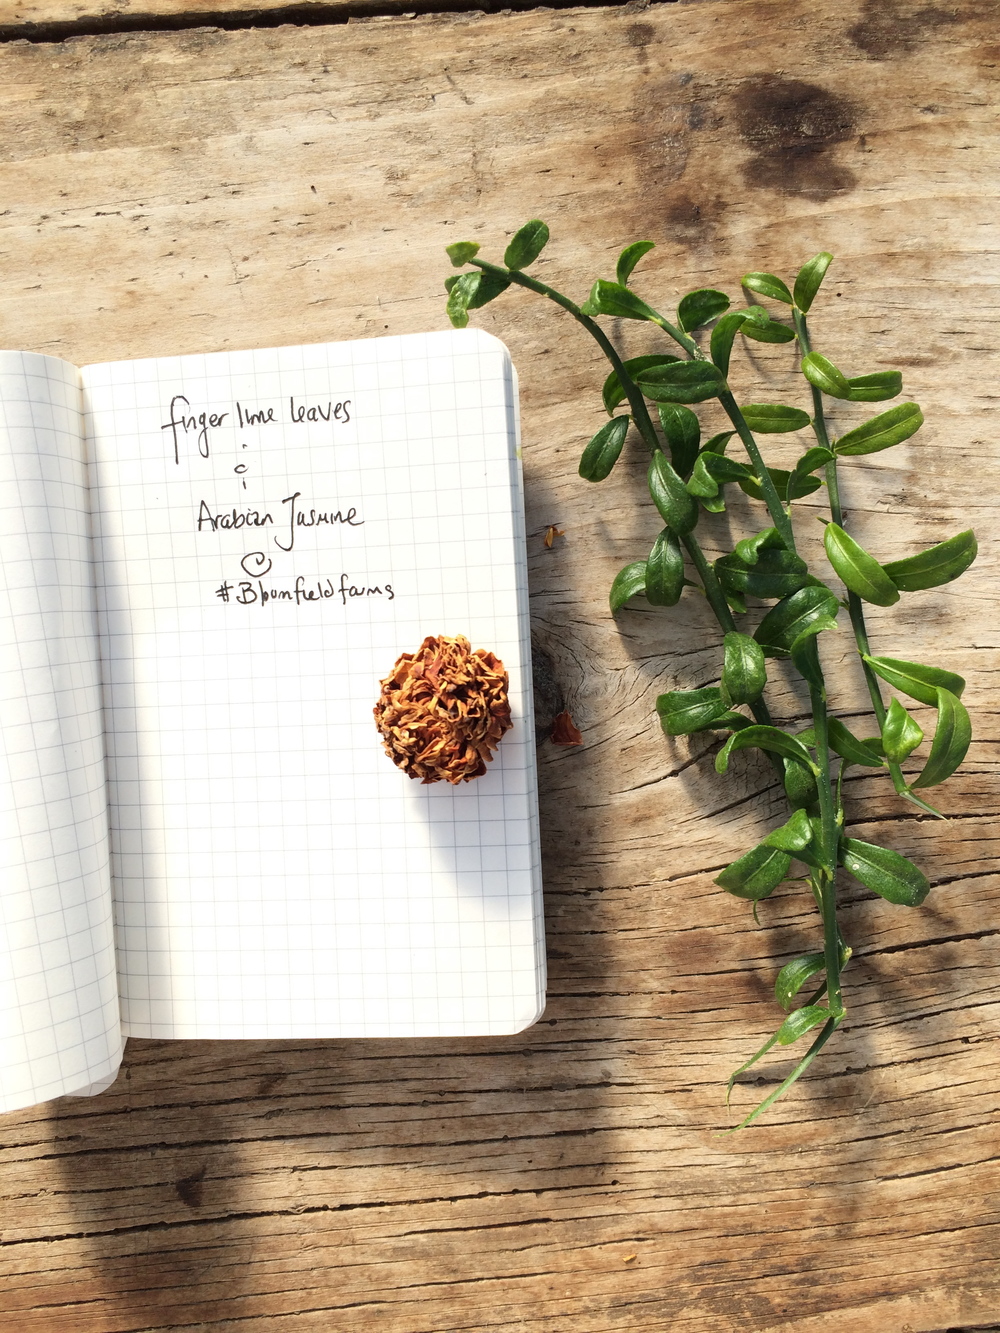 finger lime leaves
&
Arabian Jasmine
#Bloomfieldfarms